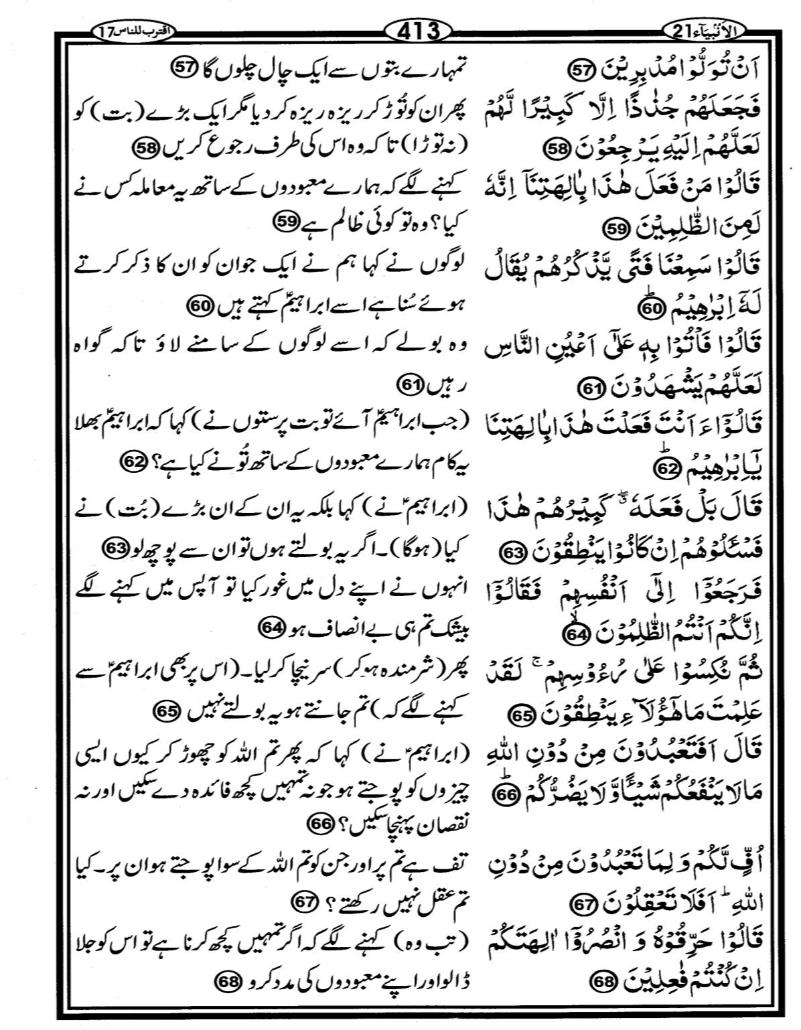 الأنبیاء21
413
اقترب للناس17
اَنۡ تُوَلُّوۡا مُدۡبِرِيۡنَ 57
تمہارے بتوں سے ایک چال چلوں گا 57
فَجَعَلَهُمۡ جُذٰذًا اِلَّا كَبِيۡرًا لَّهُمۡ
پھر ان کو توڑ کر ریزہ ریزہ کر دیا مگر ایک بڑے (بت) کو
لَعَلَّهُمۡ اِلَيۡهِ يَرۡجِعُوۡنَ 58
(نہ توڑا) تاکہ وہ اس کی طرف رجوع کریں 58
قَالُوۡا مَنۡ فَعَلَ هٰذَا بِاٰلِهَتِنَاۤ اِنَّهٗ
کہنے لگے کہ ہمارے معبودوں کے ساتھ یہ معاملہ کس نے
لَمِنَ الظّٰلِمِيۡنَ 59
کیا؟ وہ تو کوئی ظالم ہے 59
قَالُوۡا سَمِعۡنَا فَتًى يَّذۡكُرُهُمۡ يُقَالُ
لوگوں نے کہا ہم نے ایک جوان کو ان کا ذکر کرتے
لَهٗۤ اِبۡرٰهِيۡمُ ؕ 60
ہوئے سُنا ہے اسے ابراہیمؑ کہتے ہیں 60
قَالُوۡا فَاۡتُوۡا بِهٖ عَلٰٓى اَعۡيُنِ النَّاسِ
وہ بولے کہ اسے لوگوں کے سامنے لاؤ تاکہ گواہ
لَعَلَّهُمۡ يَشۡهَدُوۡنَ 61
رہیں 61
قَالُوۡۤا ءَاَنۡتَ فَعَلۡتَ هٰذَا بِاٰلِهَتِنَا
(جب ابراہیمؑ آئے تو بت پرستوں نے) کہا کہ ابراہیمؑ بھلا
يٰۤاِبۡرٰهِيۡمُ ؕ 62
یہ کام ہمارے معبودوں کے ساتھ تُو نے کیا ہے؟ 62
قَالَ بَلۡ فَعَلَهٗ ۖ كَبِيۡرُهُمۡ هٰذَا
(ابراہیمؑ نے) کہا بلکہ یہ ان کے ان بڑے (بُت) نے
فَسۡـَٔلُوۡهُمۡ اِنۡ كَانُوۡا يَنۡطِقُوۡنَ 63
کیا (ہوگا)۔ اگر یہ بولتے ہوں تو ان سے پوچھ لو 63
فَرَجَعُوۡۤا اِلٰٓى اَنۡفُسِهِمۡ فَقَالُوۡۤا
انہوں نے اپنے دل میں غور کیا تو آپس میں کہنے لگے
اِنَّكُمۡ اَنۡتُمُ الظّٰلِمُوۡنَ ۙ 64
بیشک تم ہی بے انصاف ہو 64
ثُمَّ نُكِسُوۡا عَلٰى رُءُوۡسِهِمۡ ۚ لَقَدۡ
پھر (شرمندہ ہو کر) سر نیچا کر لیا۔ (اس پر بھی ابراہیمؑ سے
عَلِمۡتَ مَا هٰٓؤُلَآءِ يَنۡطِقُوۡنَ 65
کہنے لگے کہ) تم جانتے ہو یہ بولتے نہیں 65
قَالَ اَفَتَعۡبُدُوۡنَ مِنۡ دُوۡنِ اللّٰهِ
(ابراہیمؑ نے) کہا کہ پھر تم اللہ کو چھوڑ کر کیوں ایسی
مَا لَا يَنۡفَعُكُمۡ شَيۡـًٔا وَّلَا يَضُرُّكُمۡ ؕ 66
چیزوں کو پوجتے ہو جو نہ تمہیں کچھ فائدہ دے سکیں اور نہ
نقصان پہنچا سکیں؟ 66
اُفٍّ لَّكُمۡ وَ لِمَا تَعۡبُدُوۡنَ مِنۡ دُوۡنِ
تف ہے تم پر اور جن کو تم اللہ کے سوا پوجتے ہو ان پر۔ کیا
اللّٰهِ ؕ اَفَلَا تَعۡقِلُوۡنَ 67
تم عقل نہیں رکھتے؟ 67
قَالُوۡا حَرِّقُوۡهُ وَ انۡصُرُوۡۤا اٰلِهَتَكُمۡ
(تب وہ) کہنے لگے کہ اگر تمہیں کچھ کرنا ہے تو اس کو جلا
اِنۡ كُنۡتُمۡ فٰعِلِيۡنَ 68
ڈالو اور اپنے معبودوں کی مدد کرو 68